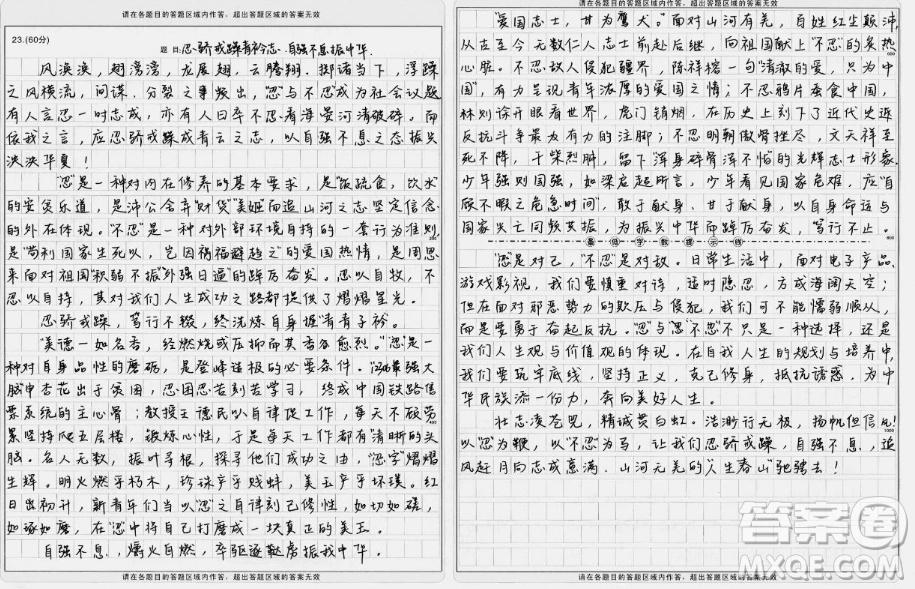 请在各题目的答题区域内作答，超出答题区域的答案无效
23.(60分)
题目:忍骄戒躁青衿志 自强不息振中华
风泱泱，翅滂滂，龙展翅，云腾翔。掷诸当下，浮躁
之风横流，间谍、分裂之事频出，“忍”与“不忍”成为社会议题
有人言忍一时志成，亦有人曰卒不忍看海晏河清破碎。而
依我之言，应忍骄戒躁成青云之志，以自强不息之态振兴
泱泱华夏！
“忍”是一种对内在修养的基本要求，是“饭疏食，饮水”
的安贫乐道，是沛公舍弃“财货”“美姬”而追山河之志坚定信念
的外在体现。“不忍”是一种对外部环境自持的一套行为准则
是“苟利国家生死以，岂因祸福避趋之”的爱国热情，是周恩
来面对祖国积弱不振“外强日逼”的踔厉奋发。忍以自牧，不
忍以自持，其对我们人生成功之路都提供了熠熠星光。
忍骄戒躁，笃行不辍，终洗炼自身握青青子衿。
“美德一如名香，经燃烧或压抑而其香愈烈。”“忍”是一
种对自身品性的磨砺，是登峰造极的必要条件。
脑单杏花出于贫困，忍困忍苦刻苦学习，终成中国铁路售
票系统的主心骨；教授王德民以自律促工作，每天不顾劳
累坚持爬五层楼，锻炼心性，于是每天工作都有“清晰的头
脑。名人无数，振叶寻根，探寻他们成功之由，“忍”字熠熠
生辉。明火燃乎朽木，珍珠产乎贱蚌，美玉产乎坏璞。红
日出初升，新青年们当以“忍”之自律刻己修性，如切如磋，
如琢如磨，在“忍”中将自己打磨成一块真正的美玉。
自强不息，爝火自燃，卒驱逐鞑虏振我中华。
请在各题目的答题区域内作答，超出答题区域的答案无效
请在各题目的答题区域内作答，超出答题区域的答案无效
“爱国志士，甘为鹰犬。”面对山河有恙，百姓红尘颠沛，
从古至今无数仁人志士前赴后继，向祖国献上“不忍”的炙热
心脏。不忍敌人侵犯疆界，陈祥榕一句“清澈的爱，只为中
国”，有力呈现青年浓厚的爱国之情；不忍鸦片荼食中国，
林则徐开眼看世界，虎门销烟，在历史上刻下了近代史连
反抗斗争最为有力的注脚；不忍明朝傲骨挫尽，文天祥至
死不降，干柴烈胼，留下“浑身碎骨浑不怕”的光辉志士形象
少年强则国强，如梁启超所言，少年看见国家危难，应“自
厥不暇之危急时间”，敢于献身、甘于献身，以自身命运与
国家兴亡同频共振，为振兴中华而踔厉奋发，笃行不止。
最低字数提示线
“忍”是对己，“不忍”是对敌。日常生活中，面对电子产品、
游戏影视，我们要慎重对待，适时隐忍，方成海阔天空；
但在面对邪恶势力的欺压与侵犯，我们可不能懦弱顺从，
而是要勇于奋起反抗。“忍”与“不忍”不只是一种选择，还是
我们人生观与价值观的体现。在自我人生的规划与培养中，
我们要筑牢底线，坚持正义，克己修身，抵抗诱惑，为中
华民族添一份力，奔向美好人生。
壮志凌苍兕，精诚贯白虹。浩渺行无极，扬帆但信风！
以“忍”为鞭，以“不忍”为马，让我们忍骄戒躁，自强不息，追
风赶月向志成意满、山河无恙的“人生春山”驰骋去！
请在各题目的答题区域内作答，超出答题区域的答案无效
答案圈
MXQE.COM